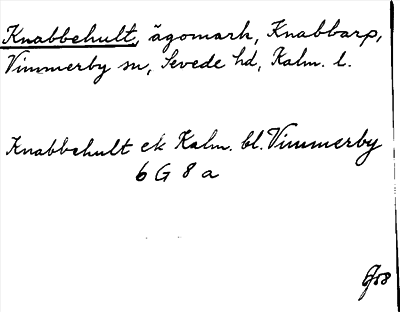 Knabbehult, ägomark, Knabbarp,
Vimmerby sn, Sevede hd, Kalm. l.
Knabbehult ek Kalm. bl. Vimmerby
6 G 8 a